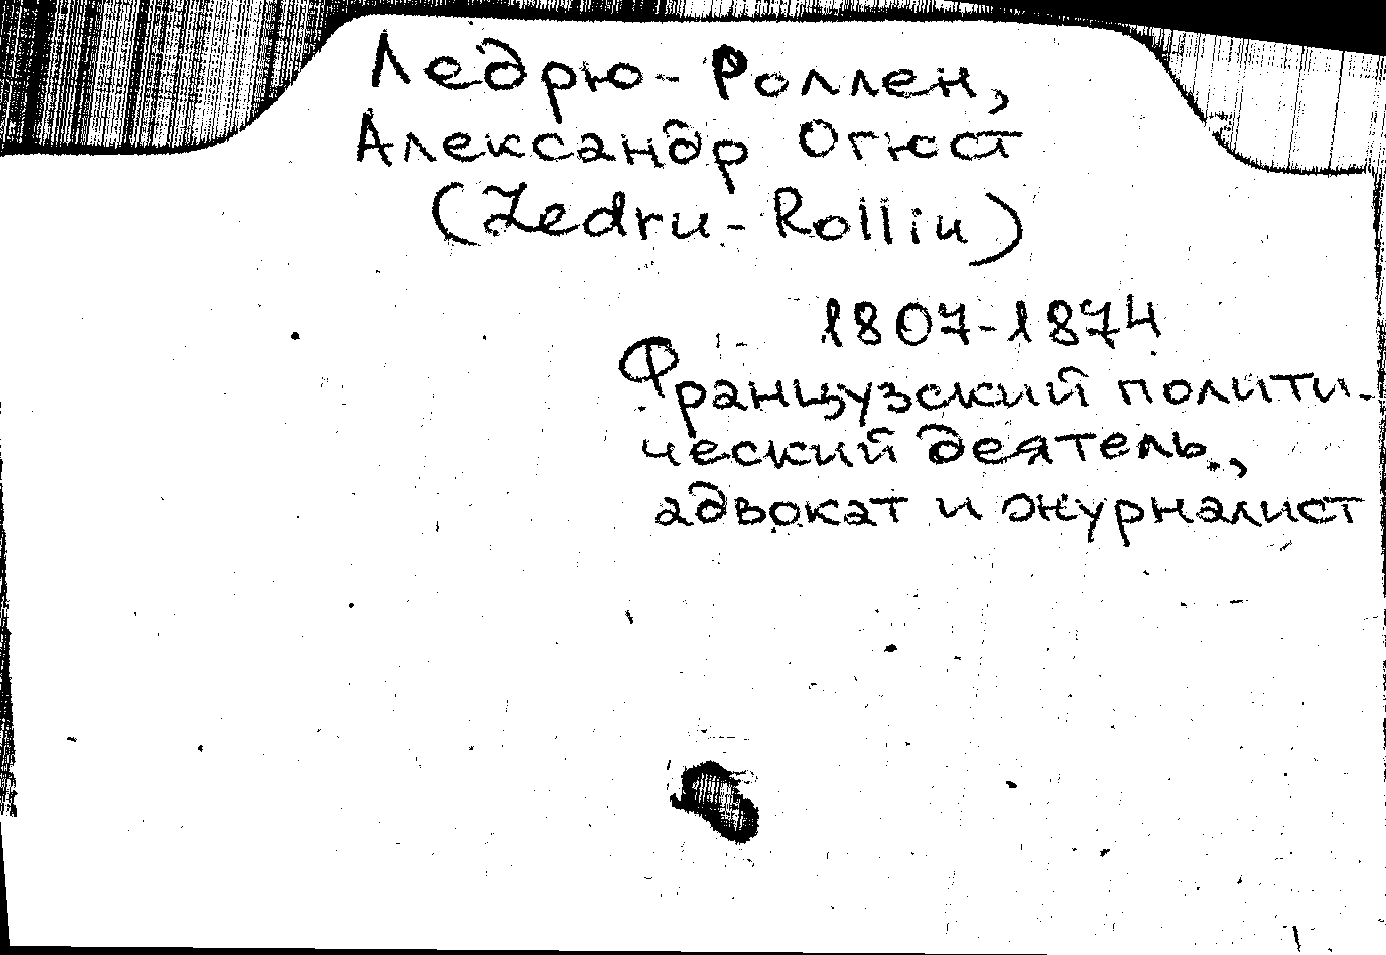 Ледрю-Роллен,
Александр Огюст
(Ledru-Rollin)
1807-1874
Французский полити-
ческий деятель,
адвокат и журналист